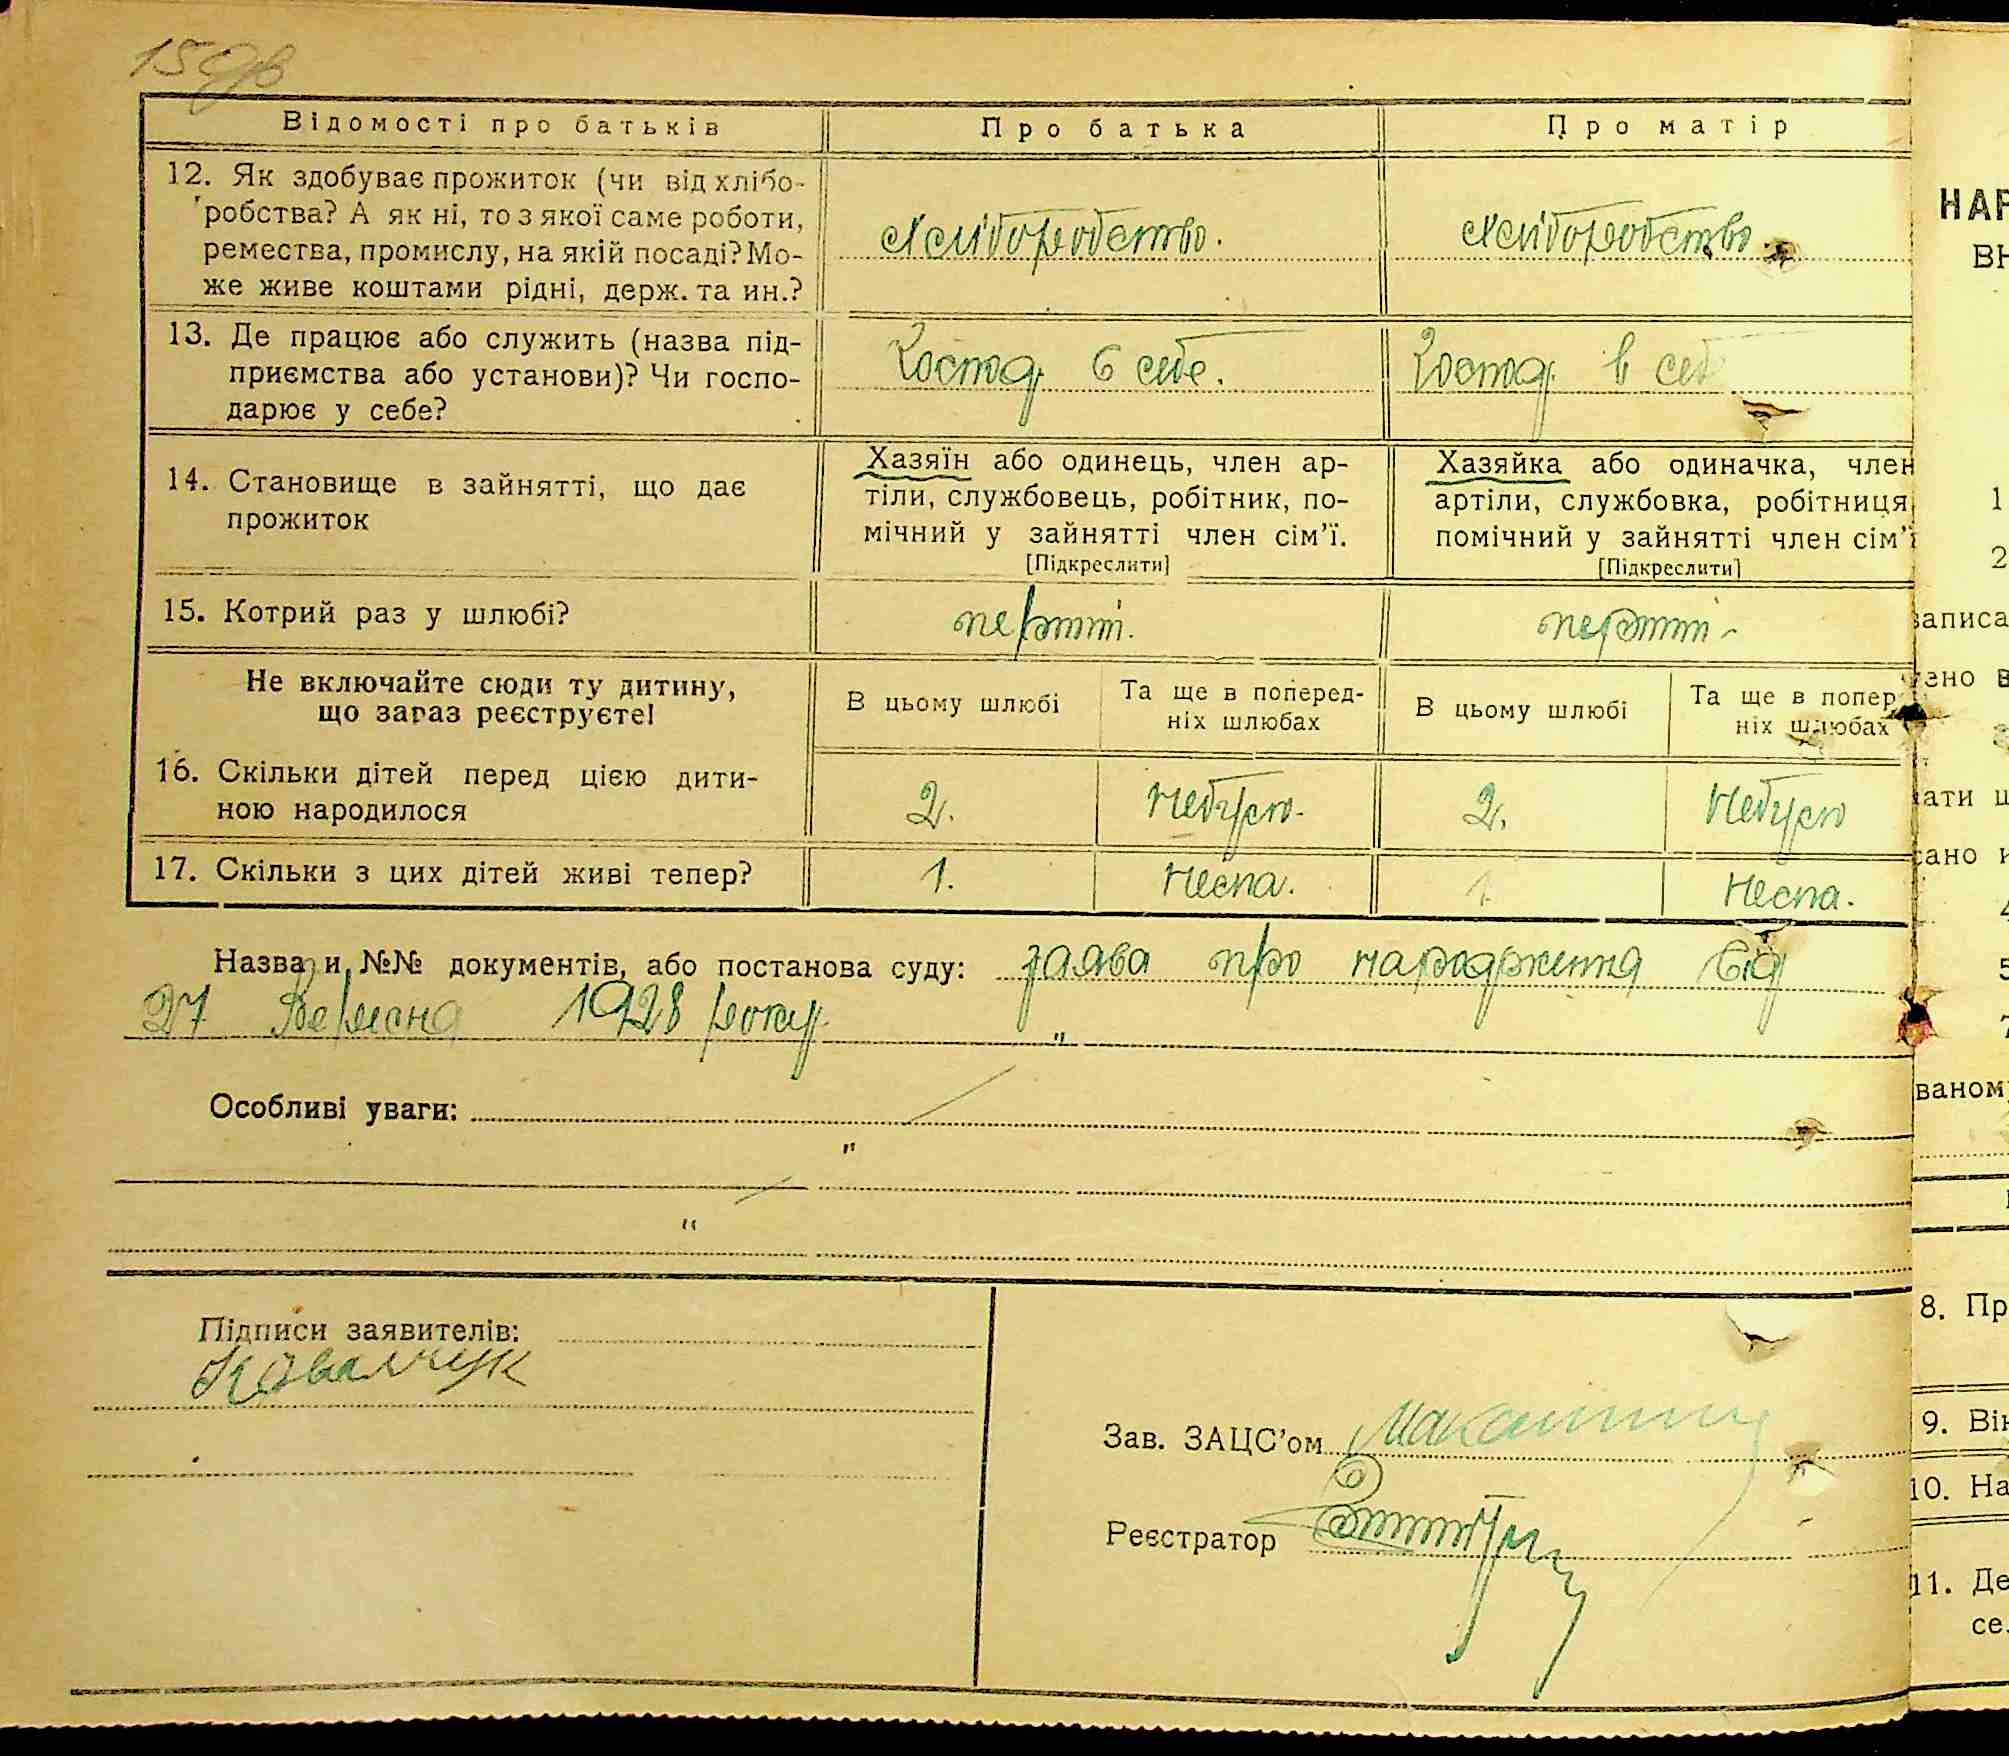 Відомості про батьків
Про батька
Про матір
12. Як здобуває прожиток (чи від хлібо-
робства? А як ні, то з якої саме роботи,
ремества, промислу, на якій посаді? Мо-
же живе коштами рідні, держ. та ин.?
Хліборобство.
Хліборобство
13. Де працює або служить (назва під-
приємства або установи)? Чи госпо-
дарює у себе?
Господ. в себе.
Господ. в себ
14. Становище в зайнятті, що дає
прожиток
Хазяїн або одинець, член ар-
тіли, службовець, робітник, по-
мічний у зайнятті член сім'ї.
[Підкреслити]
Хазяйка або одиначка, член
артіли, службовка, робітниця
помічний у зайнятті член сім'ї
[Підкреслити]
15. Котрий раз у шлюбі?
перший.
перший -
Не включайте сюди ту дитину,
що зараз реєструєте!
В цьому шлюбі
Та ще в поперед-
ніх шлюбах
В цьому шлюбі
Та ще в попер
ніх шлюбах
16. Скільки дітей перед цією дити-
ною народилося
2.
Небуло.
2.
Небуло
17. Скільки з цих дітей живі тепер?
1.
Нема.
1.
Нема.
Назва и №№ документів, або постанова суду: заява про народження від
27 Вересня 1928 року
"
Особливі уваги:
"
"
Підписи заявителів:
Ковальчук
Зав. ЗАЦС'ом
Реєстратор
НАР
ВН
1
2
записа
ено в
ати ш
сано и
5
7
ваном
8. Пр
9. Вік
10. На
11. Де
се